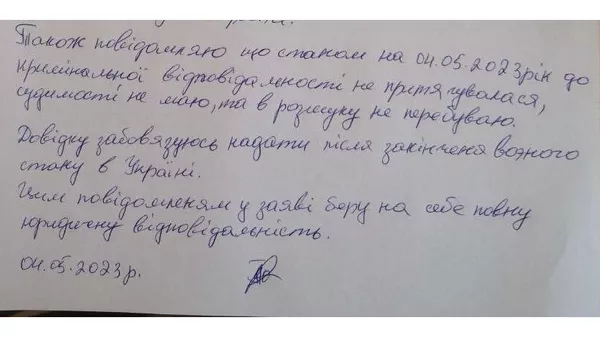 Також повідомляю що станом на 04.05.2023рік до
кримінальної відповідальності не притягувалася,
судимості не маю, та в розшуку не перебуваю.
Довідку забовязуюсь надати після закінченя воєнного
стану в Україні.
Цим повідомленям у заяві беру на себе повну
юридичну відповідальність.
04.05.2023р.